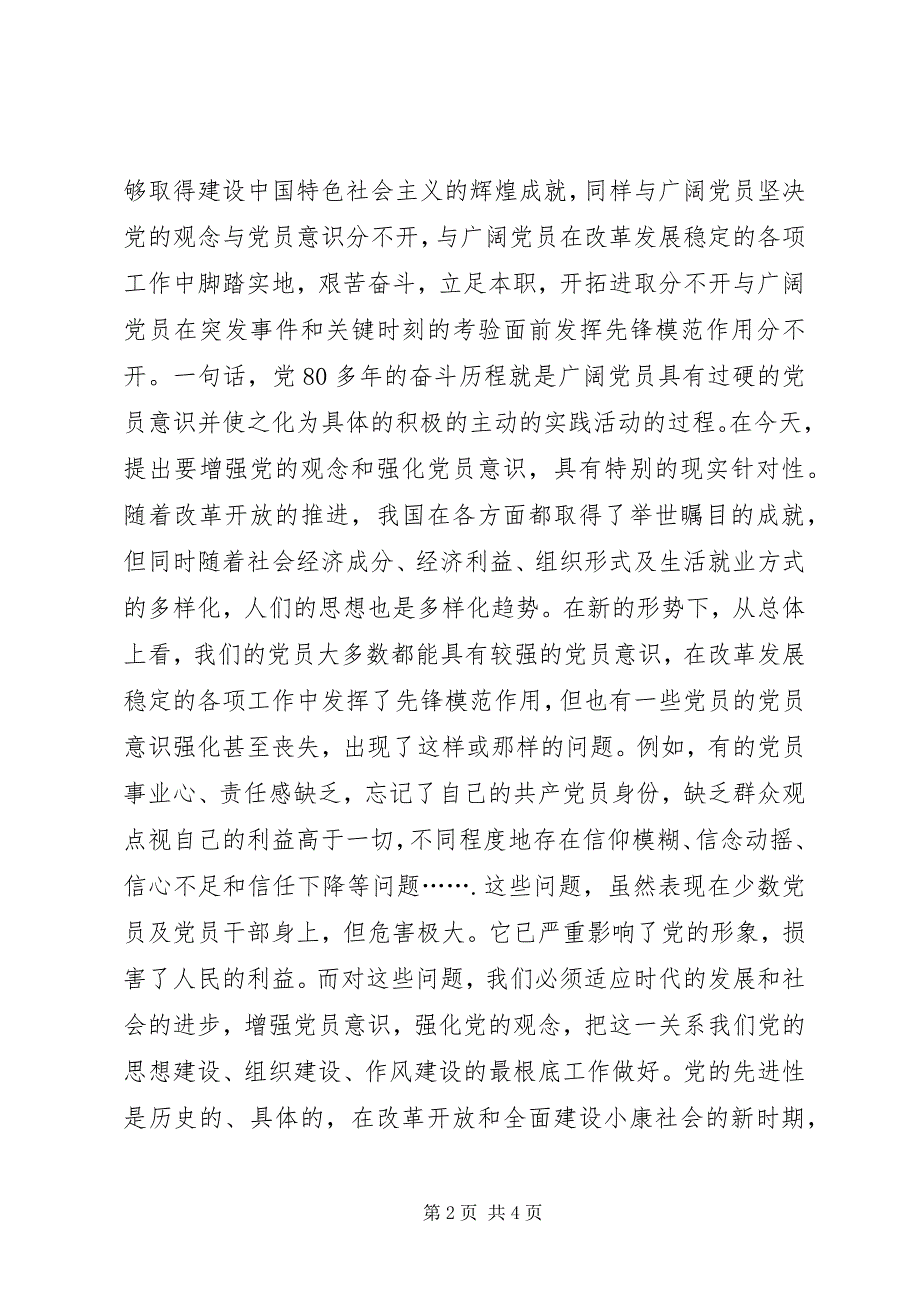 够取得建设中国特色社会主义的辉煌成就，同样与广阔党员坚决
党的观念与党员意识分不开，与广阔党员在改革发展稳定的各项
工作中脚踏实地，艰苦奋斗，立足本职，开拓进取分不开与广阔
党员在突发事件和关键时刻的考验面前发挥先锋模范作用分不
开。一句话，党 80 多年的奋斗历程就是广阔党员具有过硬的党
员意识并使之化为具体的积极的主动的实践活动的过程。在今天，
提出要增强党的观念和强化党员意识，具有特别的现实针对性。
随着改革开放的推进，我国在各方面都取得了举世瞩目的成就，
但同时随着社会经济成分、经济利益、组织形式及生活就业方式
的多样化，人们的思想也是多样化趋势。在新的形势下，从总体
上看，我们的党员大多数都能具有较强的党员意识，在改革发展
稳定的各项工作中发挥了先锋模范作用，但也有一些党员的党员
意识强化甚至丧失，出现了这样或那样的问题。例如，有的党员
事业心、责任感缺乏，忘记了自己的共产党员身份，缺乏群众观
点视自己的利益高于一切，不同程度地存在信仰模糊、信念动摇、
信心不足和信任下降等问题…….这些问题，虽然表现在少数党
员及党员干部身上，但危害极大。它已严重影响了党的形象，损
害了人民的利益。而对这些问题，我们必须适应时代的发展和社
会的进步，增强党员意识，强化党的观念，把这一关系我们党的
思想建设、组织建设、作风建设的最根底工作做好。党的先进性
是历史的、具体的，在改革开放和全面建设小康社会的新时期，
第 2 页 共 4 页